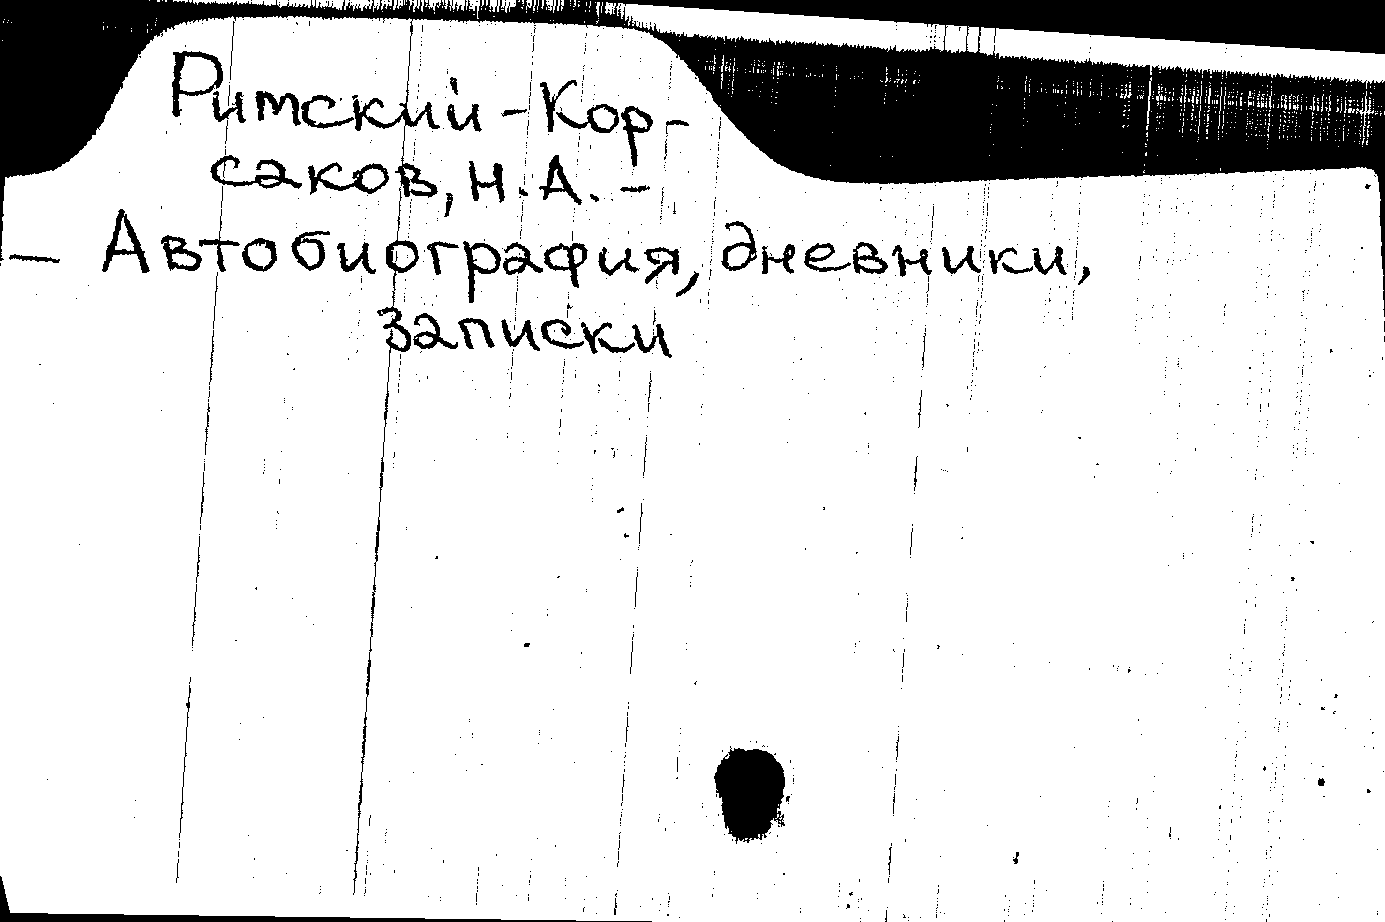 Римский-Кор-
саков, Н.А. -
- Автобиография, дневники,
записки